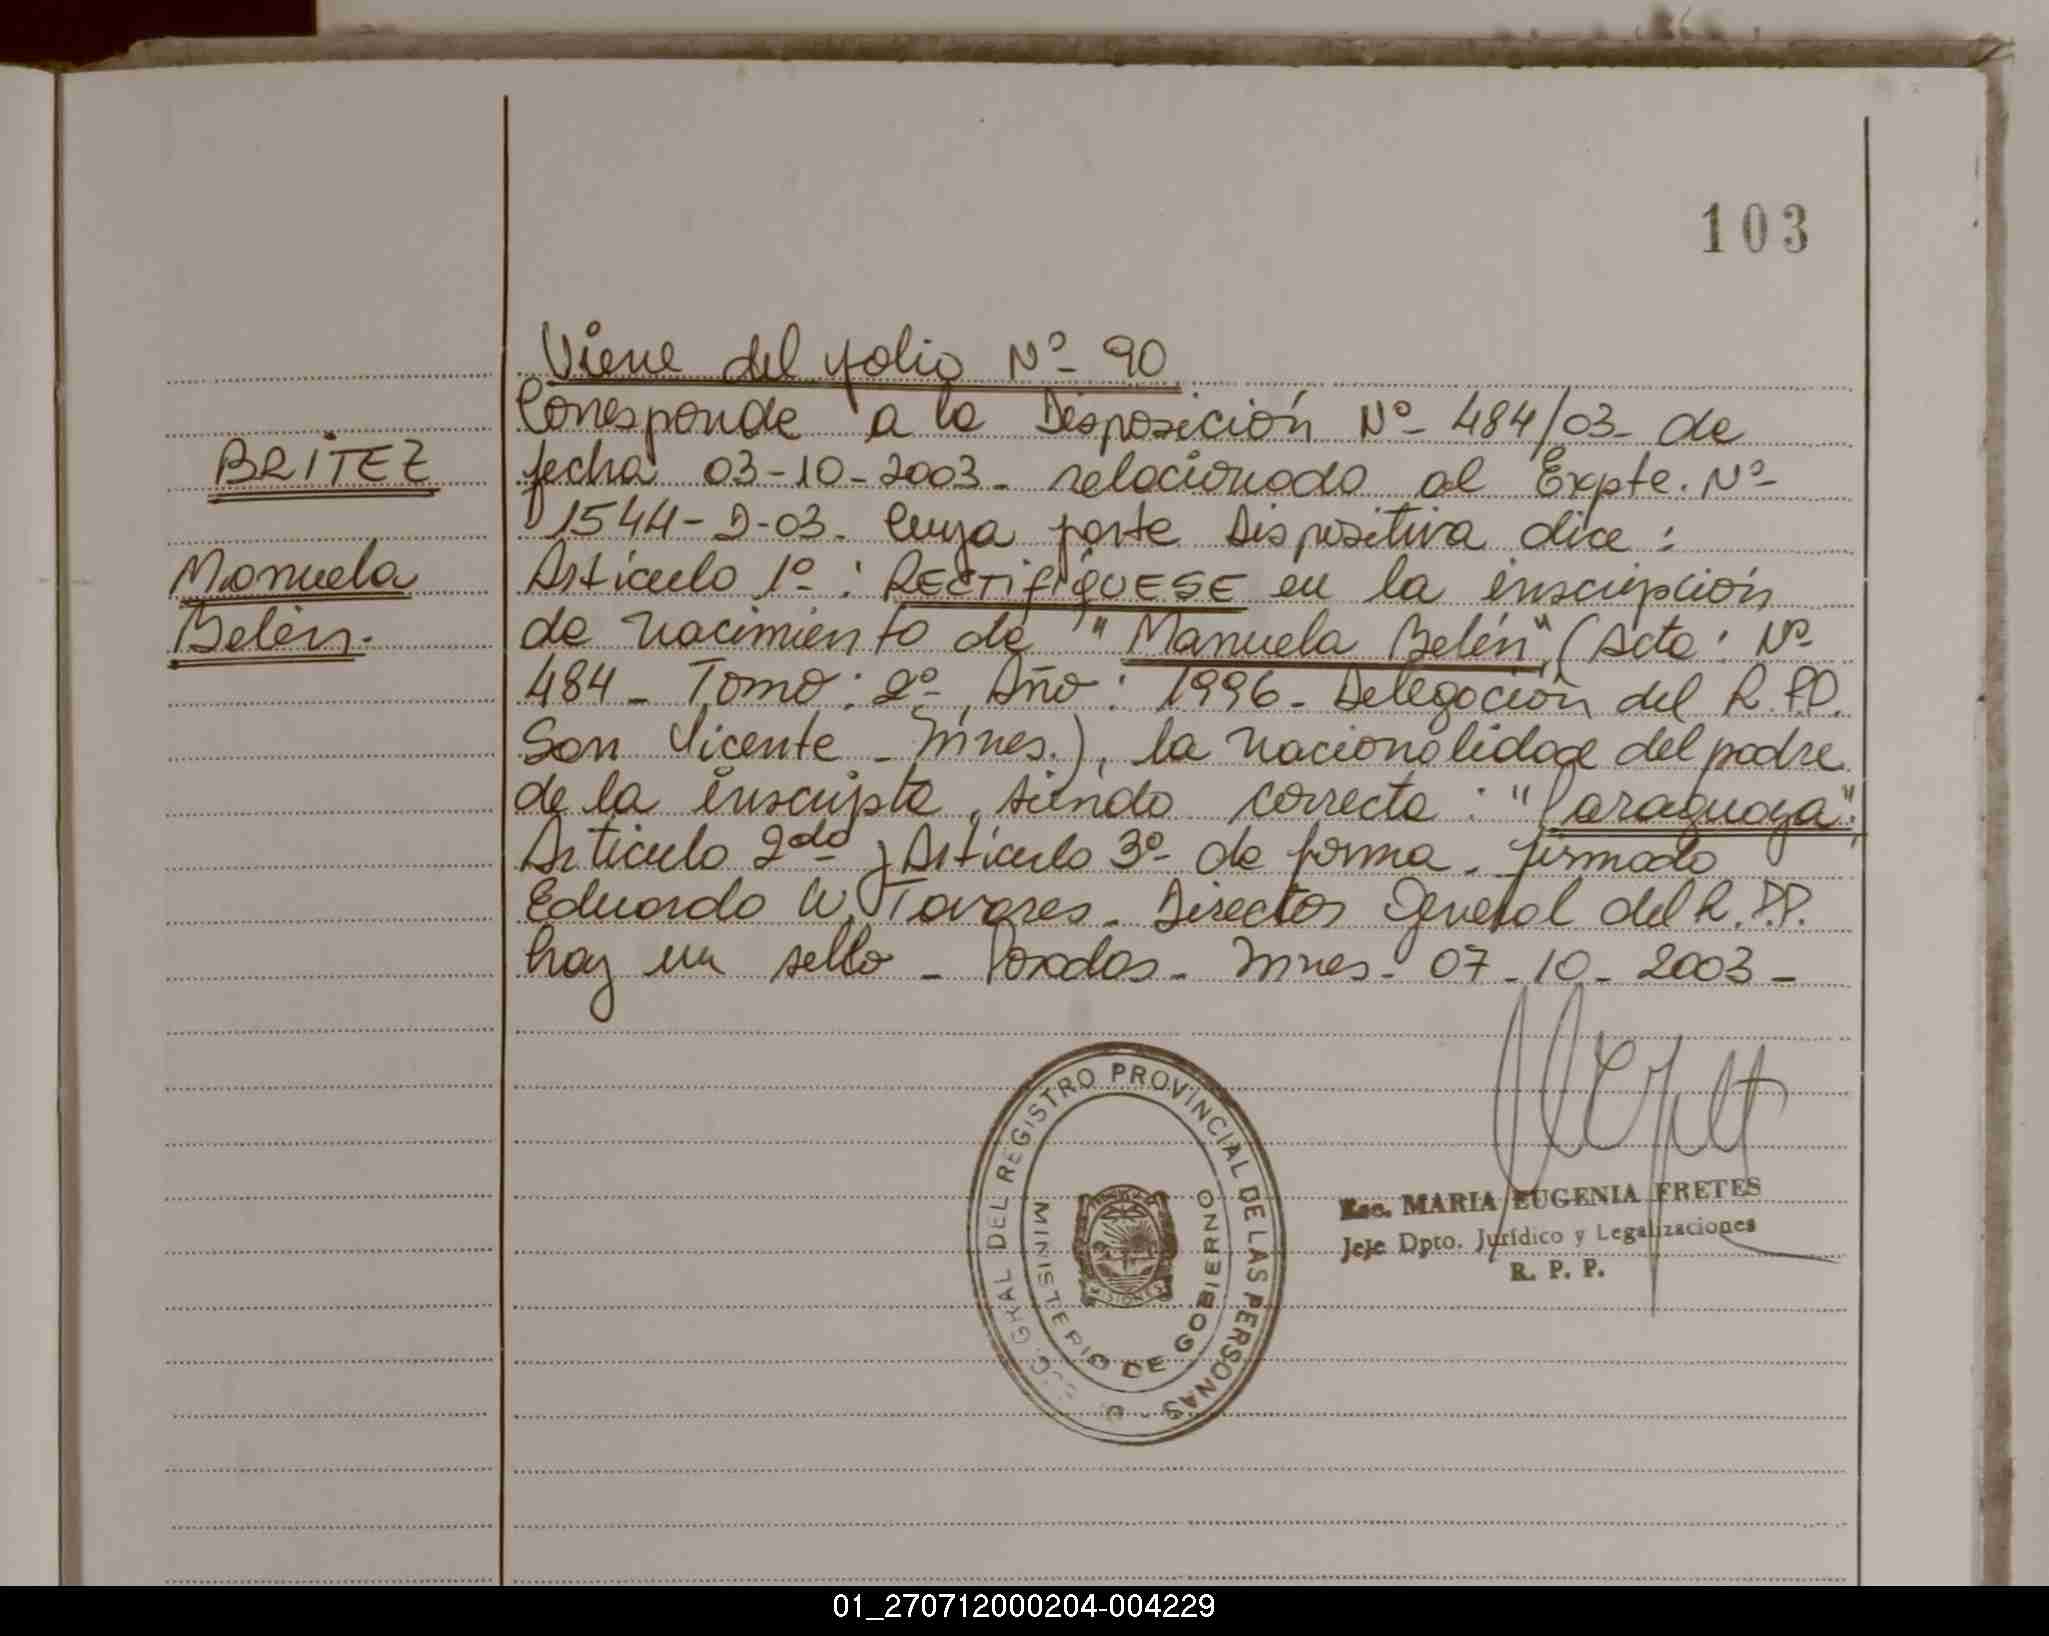 103
Viene del folio Nº 90
Corresponde a la Disposición Nº 484/03 de
BRITEZ
fecha 03-10-2003 - relacionado al Expte. Nº
1544-D-03. Cuya parte Dispositiva dice:
Manuela
Artículo 1º: RECTIFÍQUESE en la inscripción
Belén.
de nacimiento de "Manuela Belén", (Acta: Nº
484 - Tomo: 2º - Año: 1996 - Delegación del R.P.P.
San Vicente - Mnes.), la nacionalidad del padre
de la inscripta, siendo correcta: "Paraguaya";
Artículo 2do y Artículo 3º de forma. firmado
Eduardo W. Tavares - Director General del R.P.P.
hay un sello - Posadas - Mnes - 07-10-2003 -
GRAL. DEL REGISTRO PROVINCIAL DE LAS PERSONAS
MINISTERIO DE GOBIERNO
MISIONES
Esc. MARIA EUGENIA FRETES
Jefe Dpto. Jurídico y Legalizaciones
R. P. P.
01_270712000204-004229